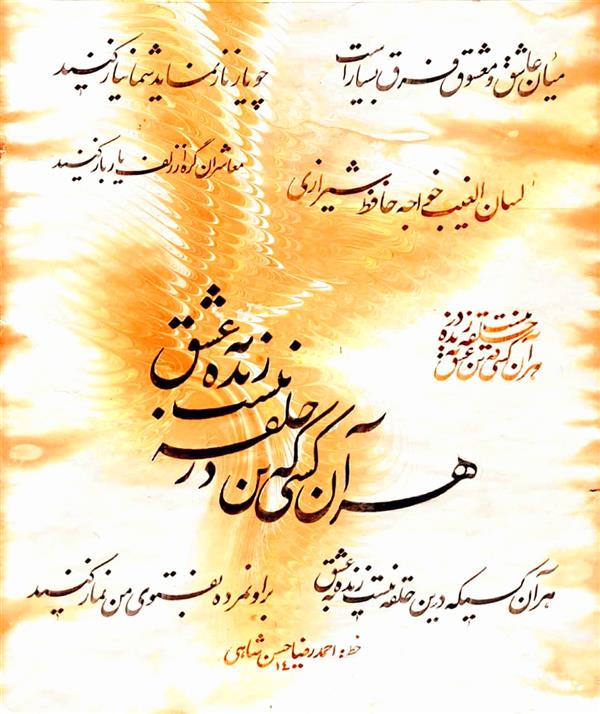 میان عاشق و معشوق فرق بسیار است
چو یار ناز نماید شما نیاز کنید
معاشران گره از زلف یار باز کنید
لسان الغیب خواجه حافظ شیرازی
هر آن کسی که درین حلقه نیست زنده به عشق
هر آن کسی که درین حلقه نیست زنده به عشق
هر آن کسیکه درین حلقه نیست زنده به عشق
برا و نمرده بفتوی من نماز کنید
خط: احمدرضا حسن شاهی